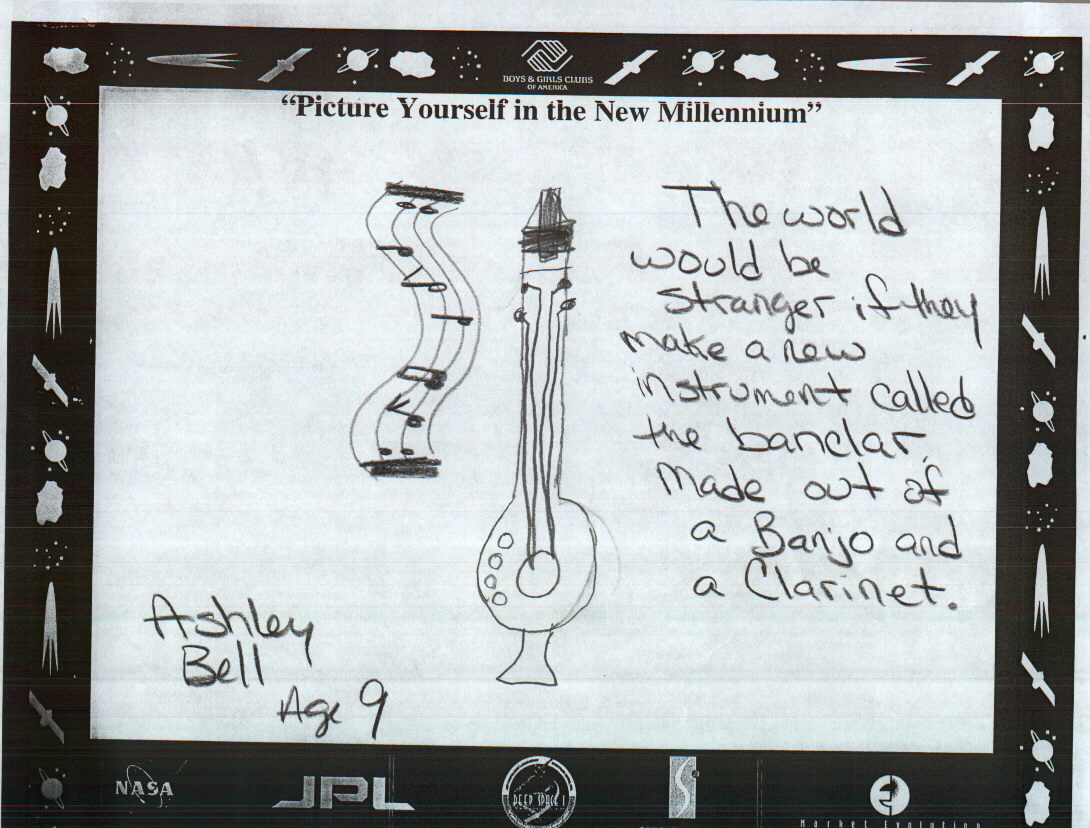 BOYS & GIRLS CLUBS
OF AMERICA
“Picture Yourself in the New Millennium”
The world
would be
stranger if they
make a new
instrument called
the banclar,
Made out of
a Banjo and
a Clarinet.
Ashley
Bell
Age 9
NASA
JPL
DEEP SPACE 1
Market Evolution